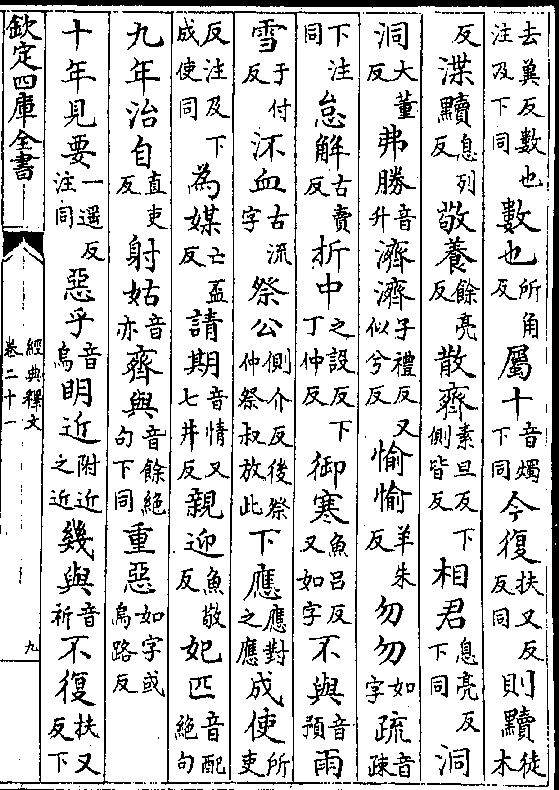 去冀反數也注及下同數也所角反屬十音燭下同今復扶又反下同則黷徒木
反渫黷息列反敬養餘亮反散齊素旦反下側皆反相君息亮反下同洞
洞大董反弗勝音升濟濟子禮反又似兮反愉愉羊朱反勿勿如字疏音疎
下注同怠解古賣反折中之設反下丁仲反御寒魚呂反又如字不與音預雨
雪于付反沠血古流字祭公側介反後祭仲祭叔放此下應應對之應成使所吏
反注及下成使同為媒亡盃反請期音情又七井反親迎魚敬反妃匹音配絕句
九年治自直吏反射姑音亦齊與音餘絕句下同重惡如字或烏路反
十年見要一遥反注同惡乎音烏明近附近之近幾與音祈不復扶又反下
欽定四庫全書
經典釋文
卷二十一
九